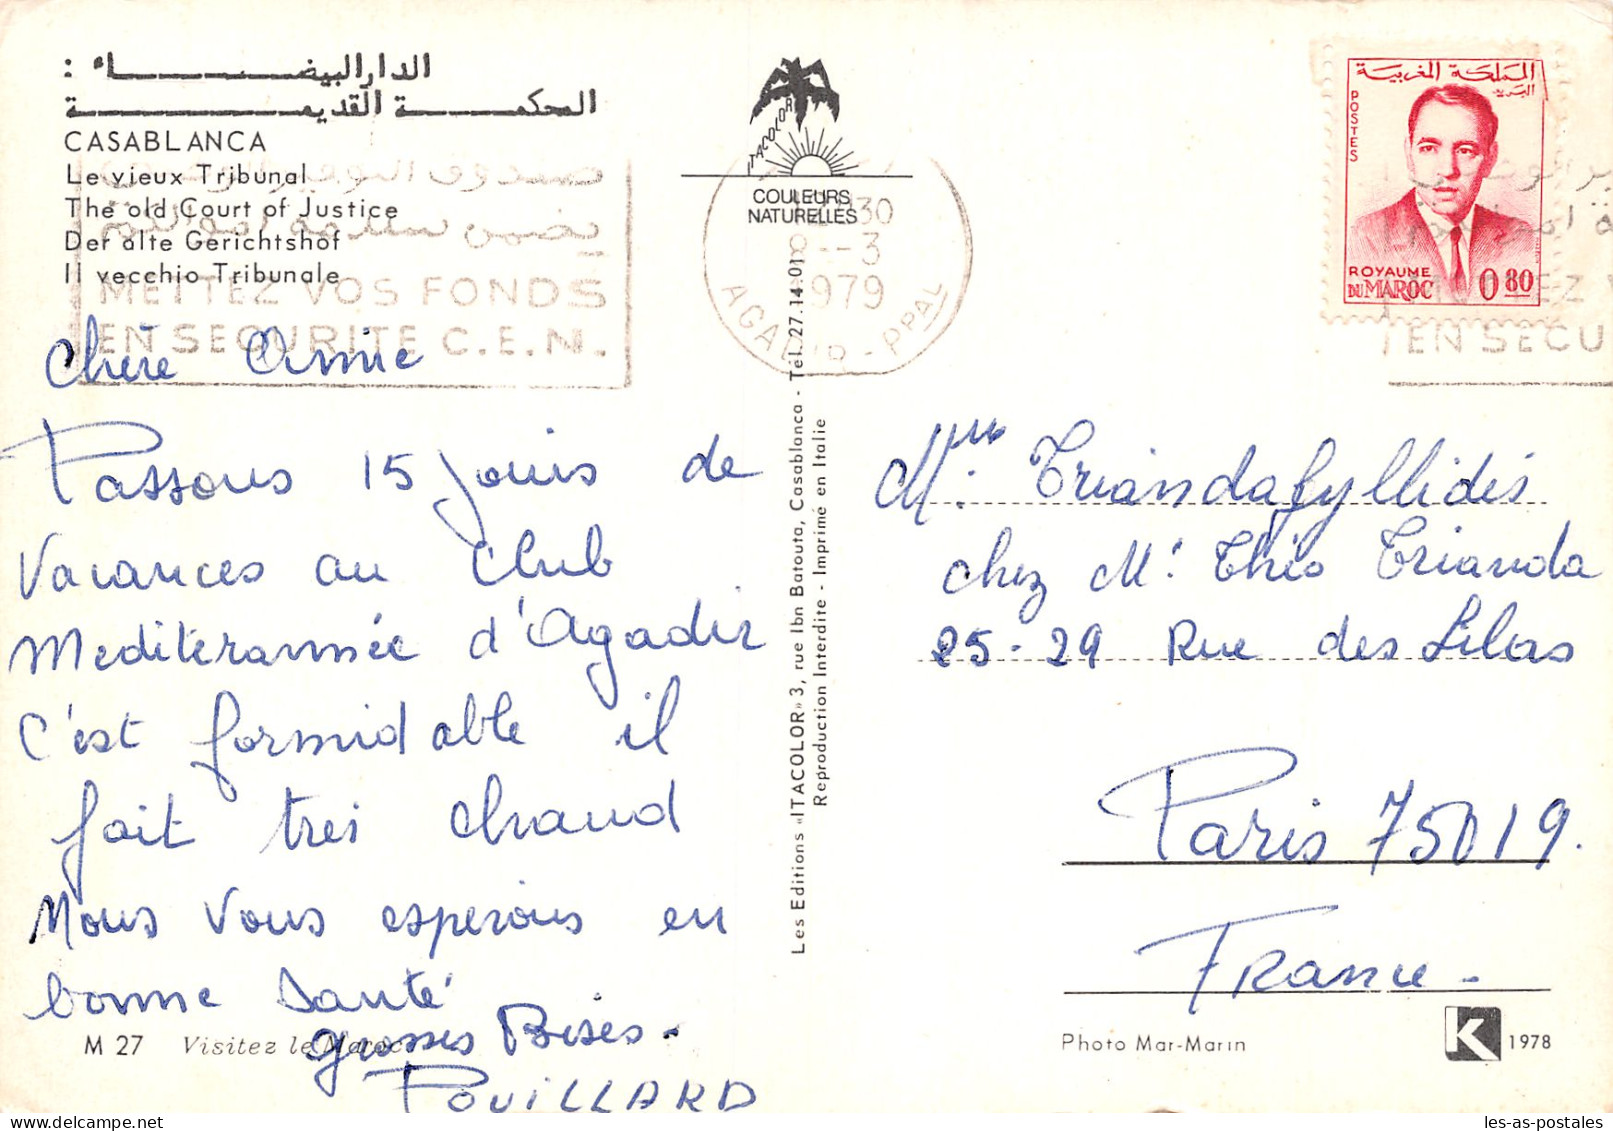 الدار البيضاء :
المحكمة القديمة
CASABLANCA
Le vieux Tribunal
The old Court of Justice
Der alte Gerichtshof
Il vecchio Tribunale
صندوق التوفير الوطني
يضمن سلامة أموالكم
METTEZ VOS FONDS
EN SECURITE C.E.N.
ITACOLOR
COULEURS
NATURELLES
1979
AGADIR - PPAL
المملكة المغربية
البريد
POSTES
ROYAUME
DU MAROC 0.80
EN SECU
Chère Amie
Passons 15 jours de
Vacances au Club
Mediterannée d'Agadir
C'est formidable il
fait tres chaud
Nous vous esperons en
bonne Santé
grosses Bises.
POUILLARD
M 27 Visitez le Maroc
Les Editions «ITACOLOR» 3, rue Ibn Batouta, Casablanca - Tél. 27.14.01
Reproduction Interdite - Imprimé en Italie
Mme Triandafyllidés
chez Mr Théo Trianda
25-29 Rue des Lilas
Paris 75019.
France-
Photo Mar-Marin
K 1978
les-as-postales